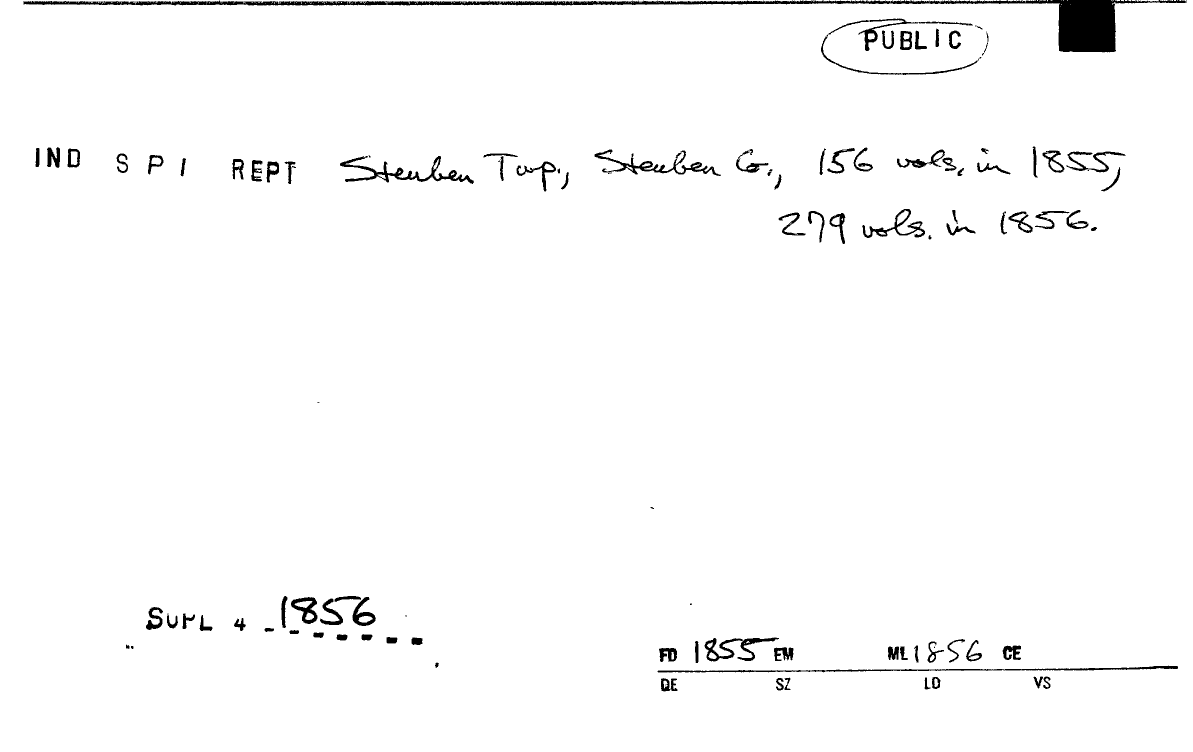 PUBLIC
IND S P I REPT Steuben Twp., Steuben Co., 156 vols. in 1855,
279 vols. in 1856.
SUPL 4 1856
FD 1855 EM ML 1856 CE
DE SZ LD VS